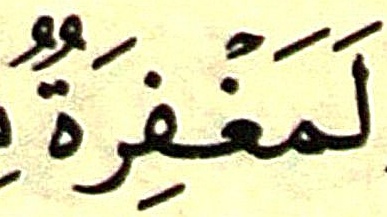 لَمَغْفِرَةٌ